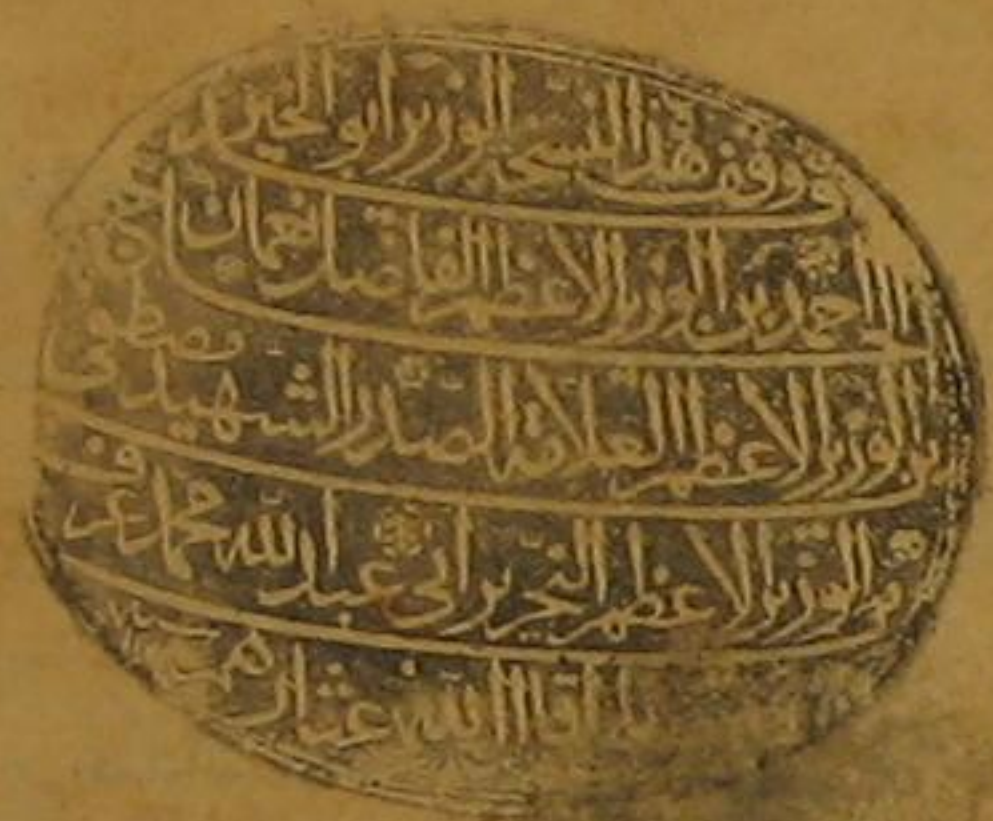 قد وقف هذا النسخة الوزير أبو الخير
احمد بن الوزير الاعظم الفاضل نعمان
بن الوزير الاعظم العلامة الصدر الشهيد مصطفى
بن الوزير الاعظم النحرير ابي عبد الله محمد عرف
اقال الله عثارهم